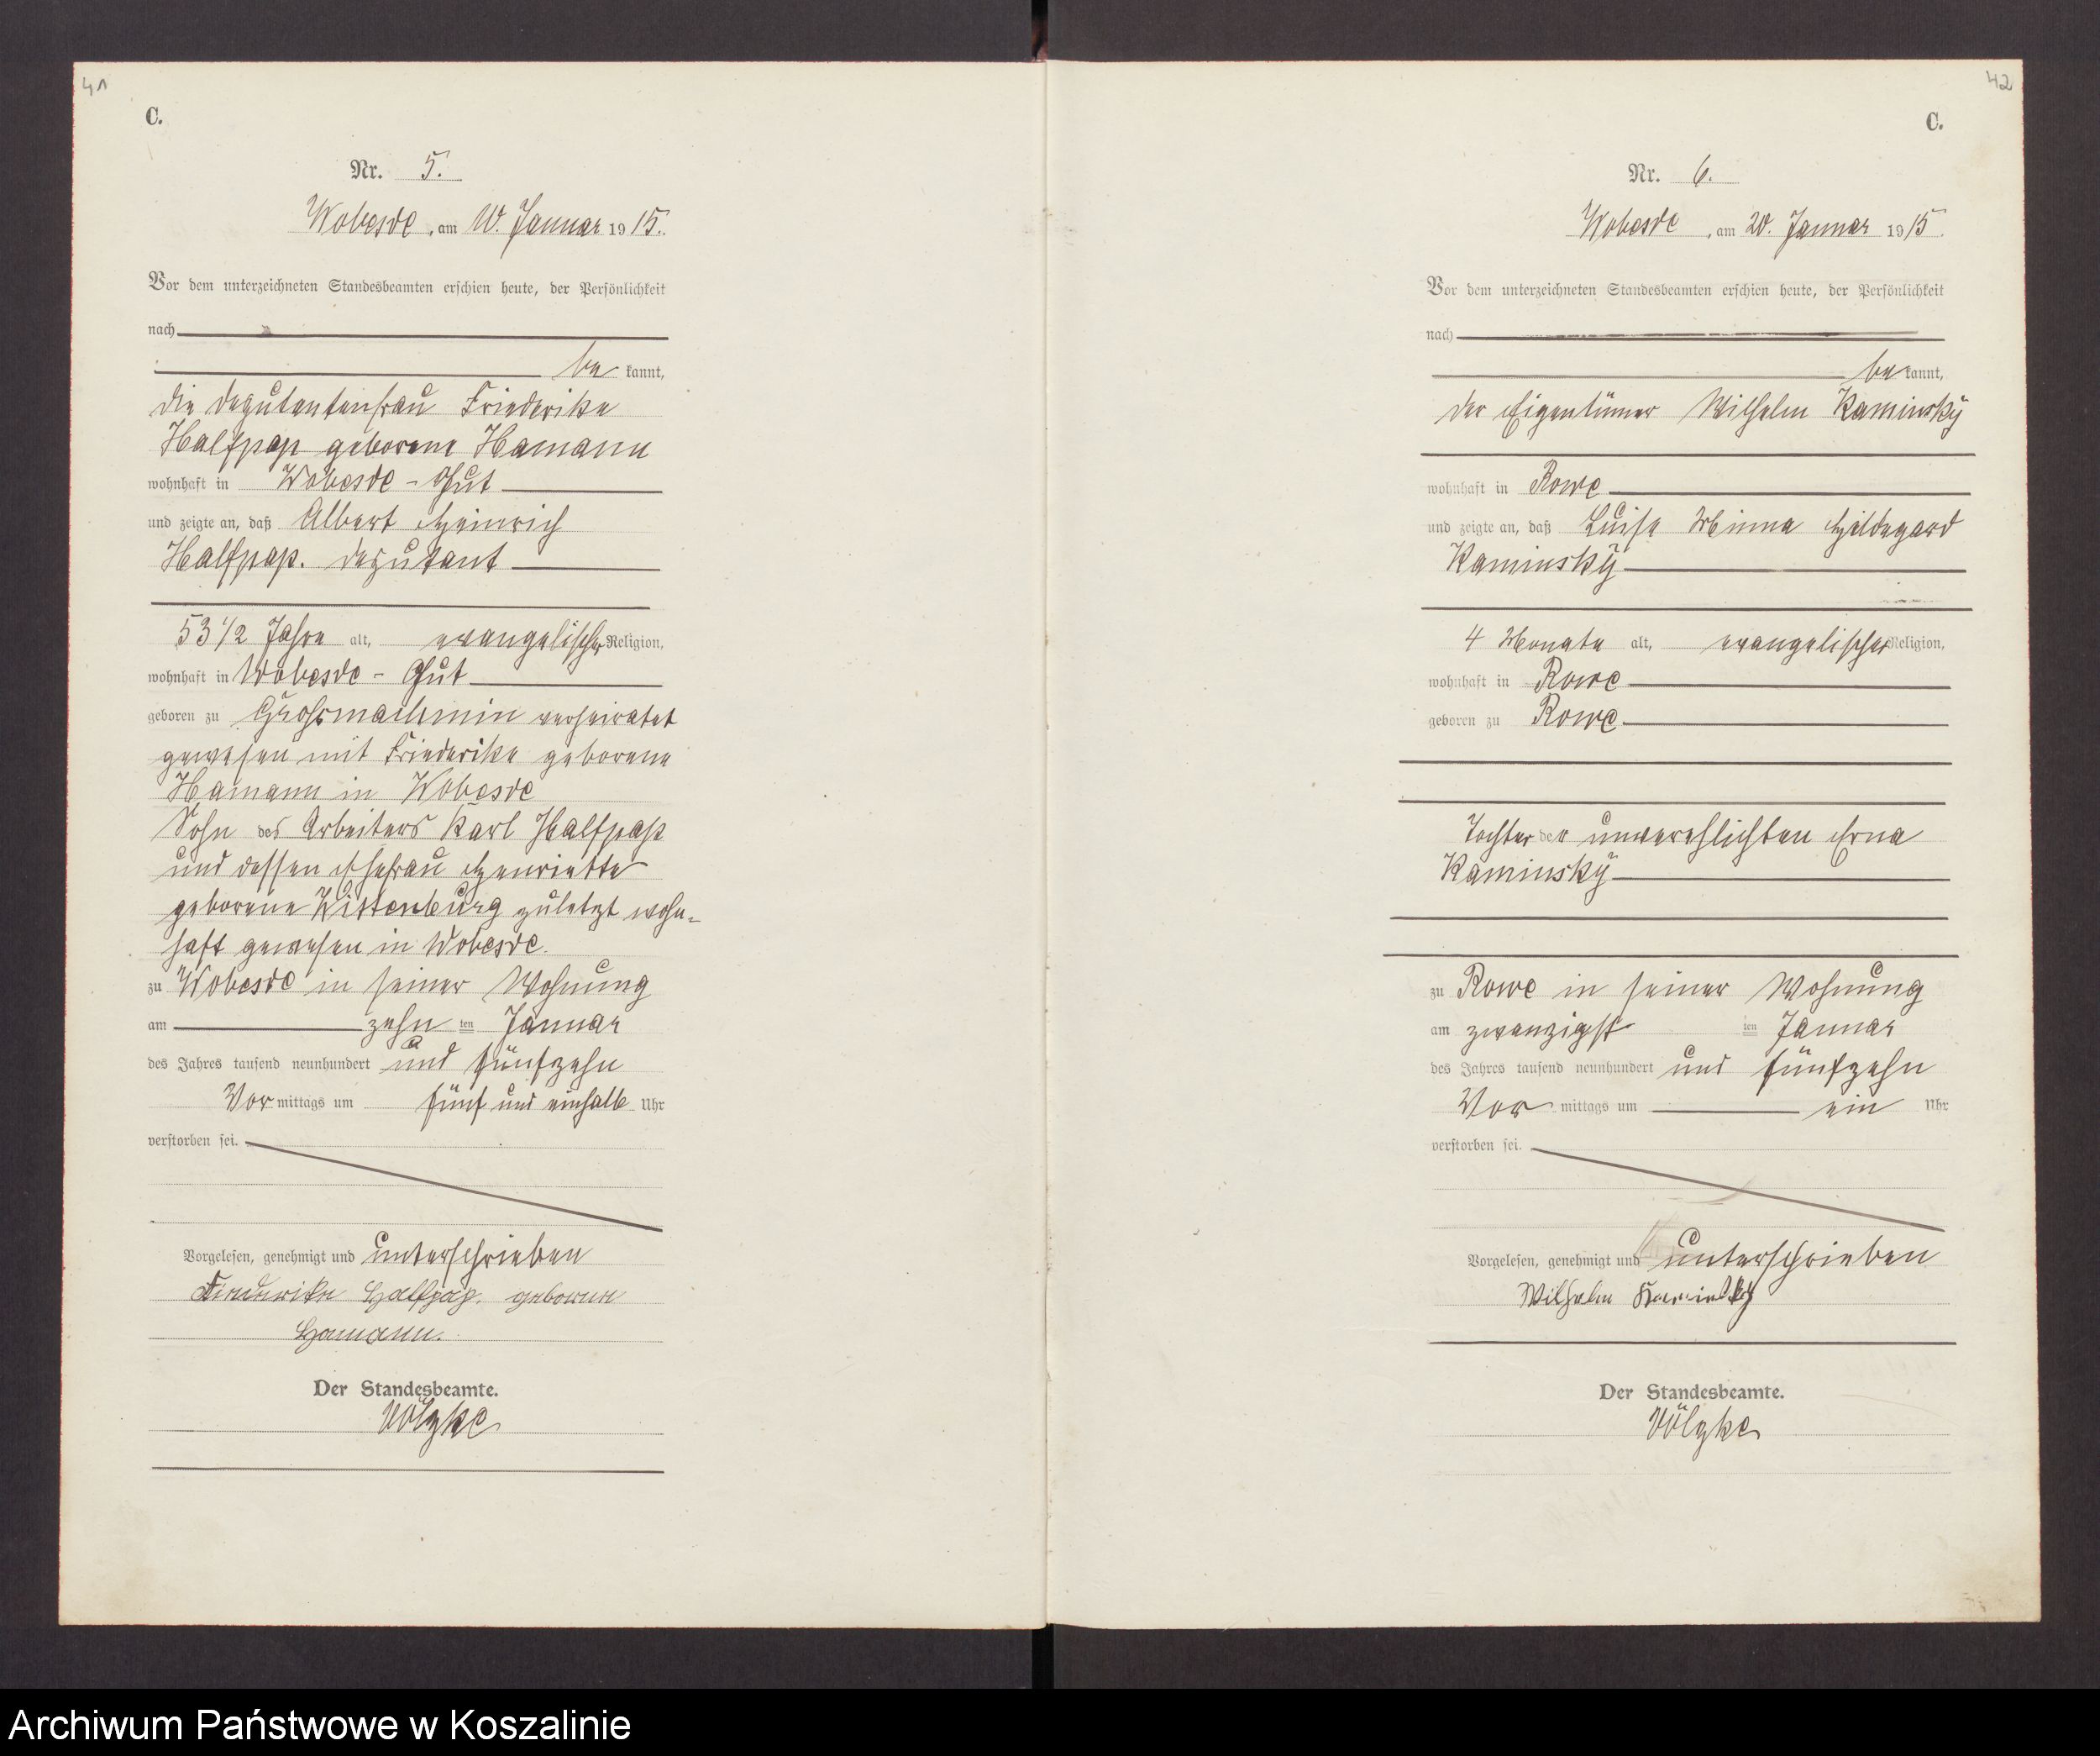 41
C.
Nr. 5.
Wobesde, am 10. Januar 1915.
Vor dem unterzeichneten Standesbeamten erschien heute, der Persönlichkeit
nach
be kannt,
die Deputantenfrau Friederike
Halfpap geborene Hamann
wohnhaft in Wobesde - Gut
und zeigte an, daß Albert Heinrich
Halfpap. Deputant
53 1/2 Jahre alt, evangelischer Religion,
wohnhaft in Wobesde - Gut
geboren zu Grossmachmin verheiratet
gewesen mit Friederike geborene
Hamann in Wobesde
Sohn des Arbeiters Karl Halfpap
und dessen Ehefrau Henriette
geborene Wittenburg zuletzt wohn-
haft gewesen in Wobesde.
zu Wobesde in seiner Wohnung
am zehn ten Januar
des Jahres tausend neunhundert und fünfzehn
Vor mittags um fünf und einhalb Uhr
verstorben sei.
Vorgelesen, genehmigt und unterschrieben
Friederike Halfpap. geborene
Hamann.
Der Standesbeamte.
Völzke
42
C.
Nr. 6.
Wobesde, am 20. Januar 1915.
Vor dem unterzeichneten Standesbeamten erschien heute, der Persönlichkeit
nach
be kannt,
der Eigentümer Wilhelm Kaminsky
wohnhaft in Rowe
und zeigte an, daß Luise Minna Hildegard
Kaminsky
4 Monate alt, evangelischer Religion,
wohnhaft in Rowe
geboren zu Rowe
Tochter der unverehlichten Erna
Kaminsky
zu Rowe in seiner Wohnung
am zwanzigst ten Januar
des Jahres tausend neunhundert und fünfzehn
Vor mittags um ein Uhr
verstorben sei.
Vorgelesen, genehmigt und unterschrieben
Wilhelm Kaminsky
Der Standesbeamte.
Völzke
Archiwum Państwowe w Koszalinie